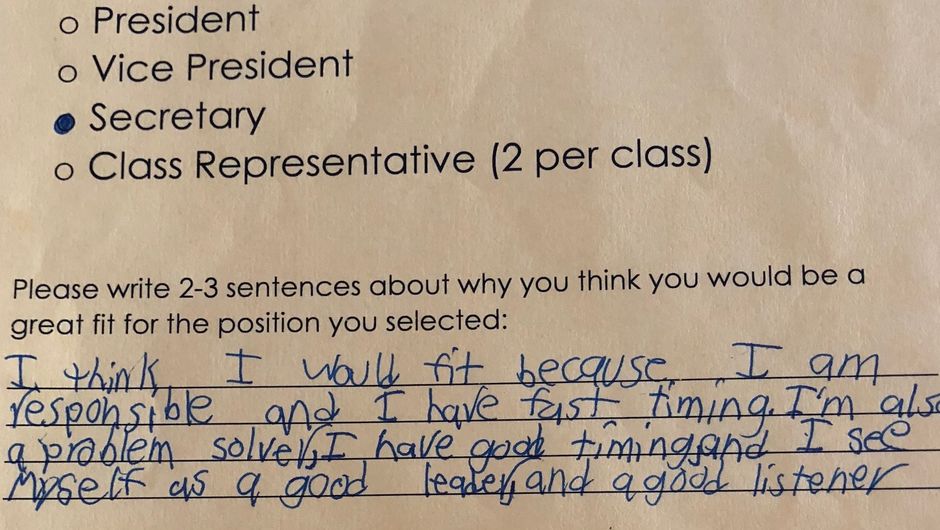 o President
o Vice President
● Secretary
o Class Representative (2 per class)
Please write 2-3 sentences about why you think you would be a
great fit for the position you selected:
I think I would fit because I am
responsible and I have fast timing. I'm also
a problem solver, I have good timing, and I see
Myself as a good leader, and a good listener